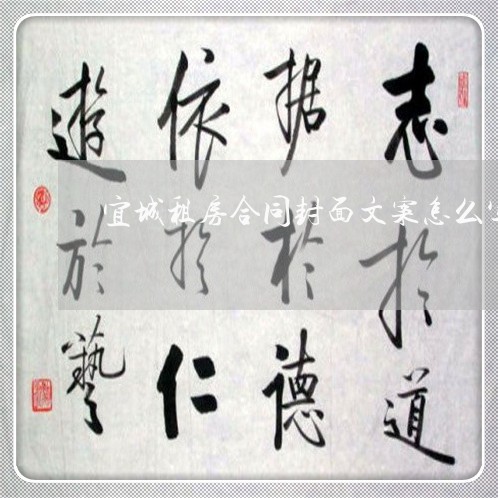 志於道
据於德
依於仁
遊於藝
宜城租房合同封面文案怎么